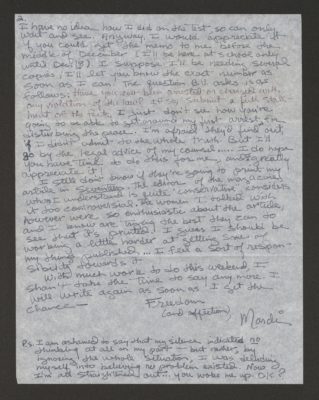 2.
I have no idea how I did on the test, so can only
wait and see. Anyway, I would appreciate it
if you could get the memo to me before the
middle of December (I'll be here at school only
until Dec.). I suppose I'll be needing several
copies; I'll let you know the exact number as
soon as I can! The question asks is as
follows: Have you ever been arrested or charged with
any violation of the law? If so, submit a full state-
ment of the facts. I just don't see how you're
going to be able to explain my just arrest, for
disturbing the peace... I'm afraid they'd find out,
if I don't admit to the whole truth. But I'd
go by the legal office of my counsel... I do hope
you have time to do this for me, and really
appreciate it!
I still don't know if they're going to print my
article in The editor of the magazine,
who I understand is quite conservative, considers
it too controversial. The women I talked with
however were so enthusiastic about the article,
and I know are trying the best they can to
see that it's printed. I guess I should be
working a little harder at getting some of
my things published... I feel a sort of respon-
sibility towards it.
With much work to do this weekend, I
shan't take the time to say any more. I
will write again as soon as I get the
chance —
Freedom
(and affection)
Mardi
P.s. I am ashamed to say that my silence indicated no
thinking at all on my part — but rather, by
ignoring the whole situation, I was deluding
myself into believing no problem existed. Now
I'm all straightened out... you woke me up. O.K.?